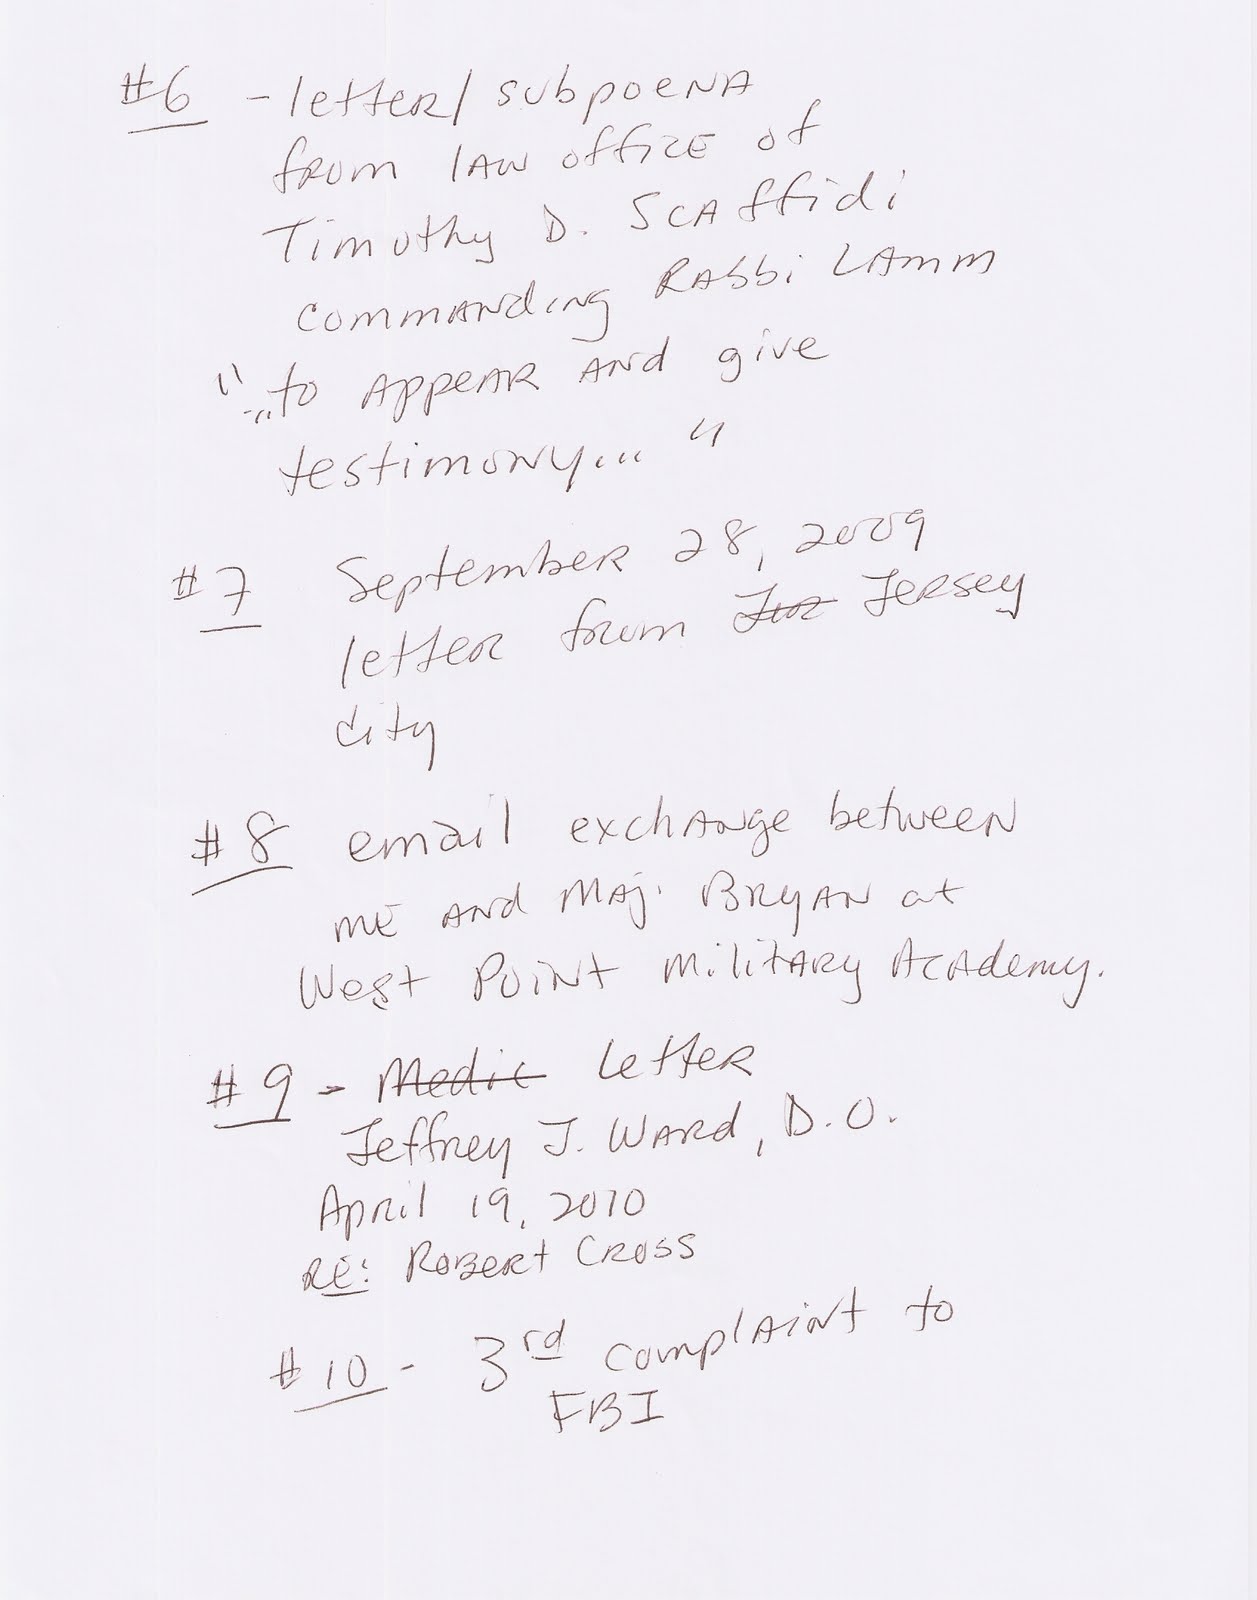 #6 - letter/subpoena
from law office of
Timothy D. Scaffidi
commanding Rabbi Lamm
"...to appear and give
testimony..."
#7 September 28, 2009
letter from Jersey
city
#8 email exchange between
me and Maj. Bryan at
West Point Military Academy.
#9 - Medic Letter
Jeffrey J. Ward, D.O.
April 19, 2010
RE: Robert Cross
#10 - 3rd complaint to
FBI